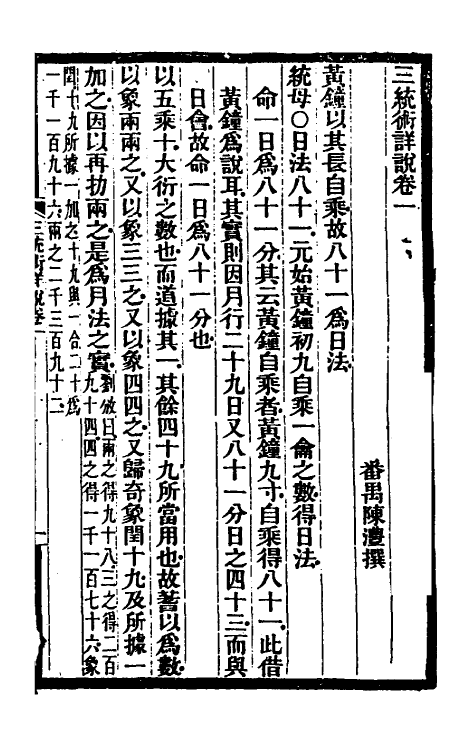 三統術詳說卷一
番禺陳澧撰
黃鐘以其長自乘故八十一爲日法
統母〇日法八十一元始黃鐘初九自乘一龠之數得日法
命一日爲八十一分其云黃鐘自乘者黃鐘九寸自乘得八十一此借
黃鐘爲說耳其實則因月行二十九日又八十一分日之四十三而與
日會故命一日爲八十一分也
以五乘十大衍之數也而道據其一其餘四十九所當用也故蓍以爲數
以象兩兩之又以象三三之又以象四四之又歸奇象閏十九及所據一
加之因以再扐兩之是爲月法之實劉攽曰兩之得九十八三之得二百
九十四四之得一千一百七十六象
閏十九所據一加之十九與一合二十爲
一千一百九十六兩之二千三百九十二
三統術詳說卷一
一